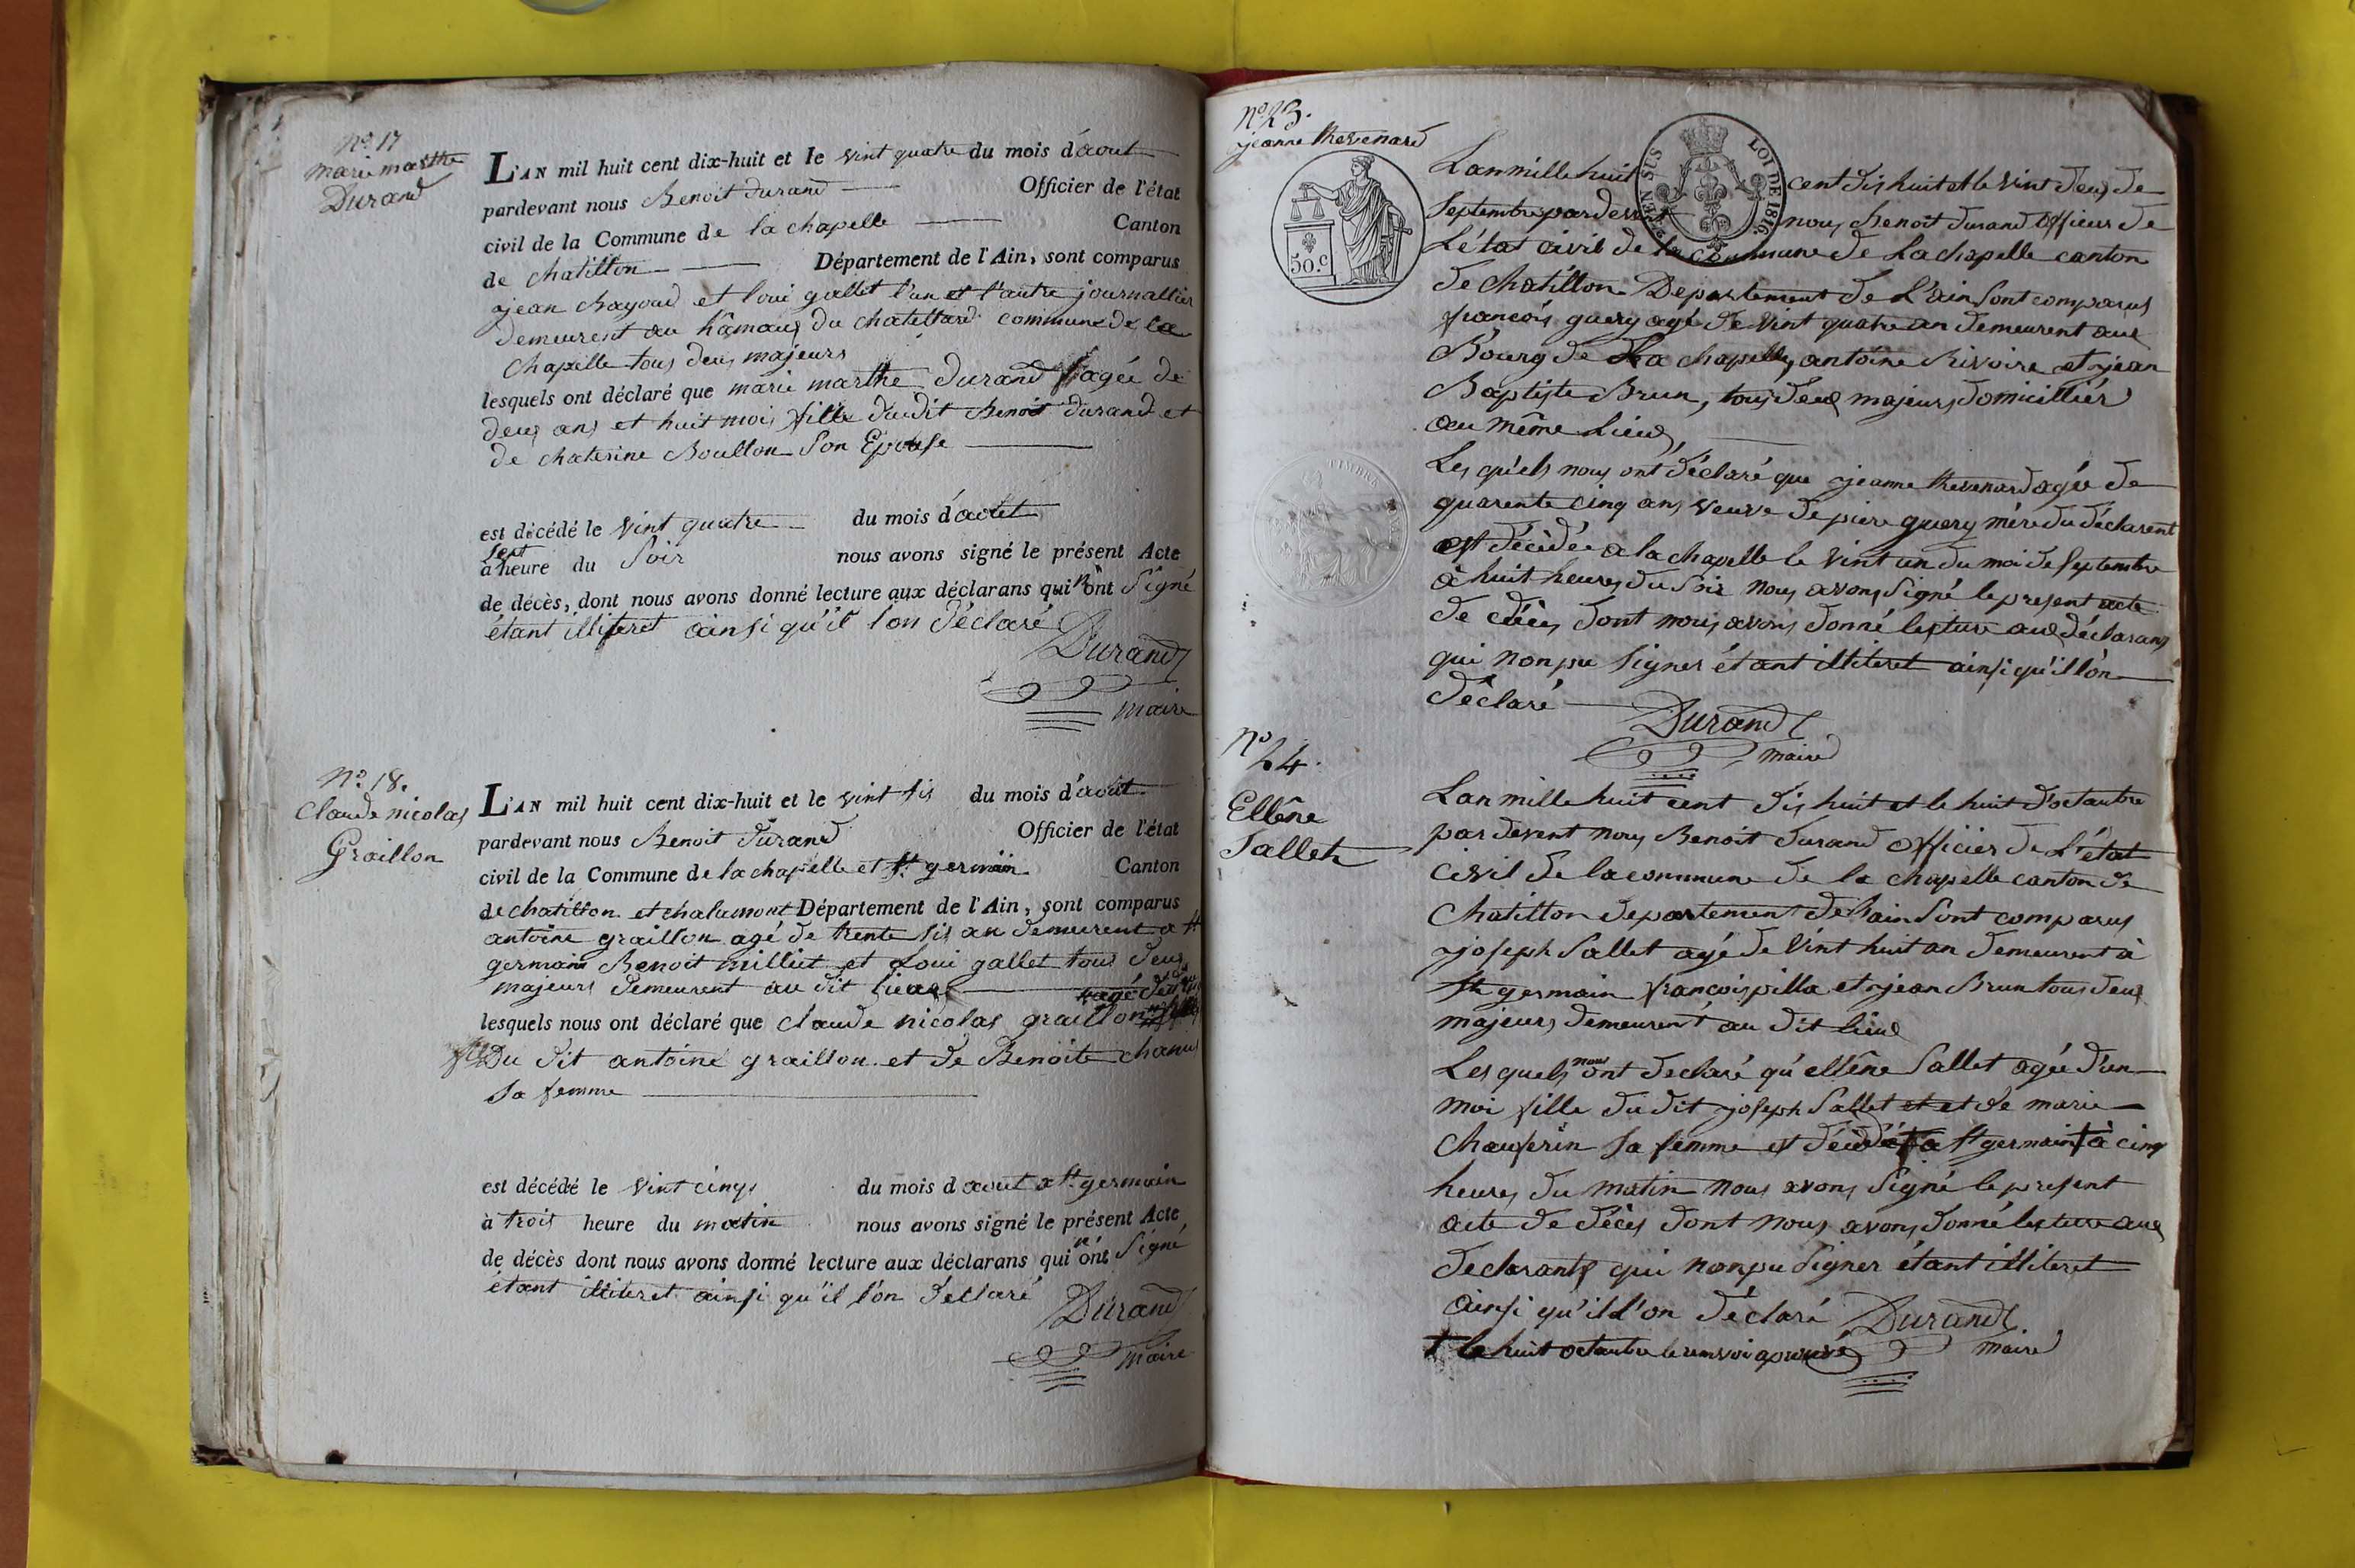 N.º 17
marie marthe
Durand
L'AN mil huit cent dix-huit et le vint quatre du mois d'aout
pardevant nous Benoit durand Officier de l'état
civil de la Commune de la chapelle Canton
de chatillon Département de l'Ain, sont comparus
jean chayoud et loui gallet l'un et l'autre journallier
demeurent au hâmaux du chatellard commune de la
chapelle tous deux majeurs
lesquels ont déclaré que marie marthe durand agée de
deux ans et huit mois fille dudit Benoit durand et
de chaterine Boullon son Epouse
est décédé le vint quatre du mois d'aout
sept
à heure du soir nous avons signé le présent Acte
de décès, dont nous avons donné lecture aux déclarans qui n'ont signé
étant illiteret ainsi qu'il l'on déclaré
Durand
maire
N.º 18.
Claude nicolas
Graillon
L'AN mil huit cent dix-huit et le vint sis du mois d'aout
pardevant nous Benoit Durand Officier de l'état
civil de la Commune de la chapelle et st. germain Canton
de chatillon et chalamont Département de l'Ain, sont comparus
antoine graillon agé de trente sis an demeurent a st
germain Benoit milliet et Loui gallet tous deux
majeurs demeurent au dit lieux
lesquels nous ont déclaré que claude nicolas graillon
Du dit antoine graillon et de Benoite chanus
sa femme
est décédé le vint cinq du mois d aout a st. germain
à trois heure du matin nous avons signé le présent Acte
de décès dont nous avons donné lecture aux déclarans qui n'ont signé
étant illiteret ainsi qu'il l'on déclaré
Durand
maire
N.º 23.
jeanne thevenard
50.c
EN SUS LOI DE 1816.
TIMBRE
Lan mille huit cent dis huit et le vint deux de
Septembre par devent nous Benoit durand officier de
L'état civil de la commune de Lachapelle canton
de chatillon Departement de L'ain sont comparus
françois guery agé de vint quatre an demeurent aux
Bourg de La chapelle, antoine Rivoire et jean
Baptiste Brun, tous deux majeurs domicillier
au même Lieux,
Les quels nous ont déclaré que jeanne thevenard agée de
quarente cinq ans veuve de piere guery mère du déclarent
est décédée a la chapelle le vint un du moi de septembre
à huit heures du soir nous avons signé le present acte
de décès dont nous avons donné lecture aux déclarans
qui non pu signer étant illiteret ainsi qu'il l'on
déclaré
Durand
maire
N.º
24.
Ellêne
Sallet
Lan mille huit cent dis huit et le huit d'octaubre
par devent nous Benoit durand officier de L'état
civil de la commune de la chapelle canton de
chatillon departement de Lain sont comparus
joseph Sallet agé de vint huit an demeurent à
st germain françois pilla et jean Brun tous deux
majeurs demeurent au dit lieux
Les quels nous ont declaré qu'ellêne Sallet agée d'un
moi fille du dit joseph Sallet et et de marie
chauferin sa femme est décédé a st germain † à cinq
heures du matin nous avons signé le present
acte de décès dont nous avons donné lecture aux
declarants qui non pu signer étant illiteret
ainsi qu'il l'on déclaré Durand
† le huit octaubre le renvoi aprouvé maire